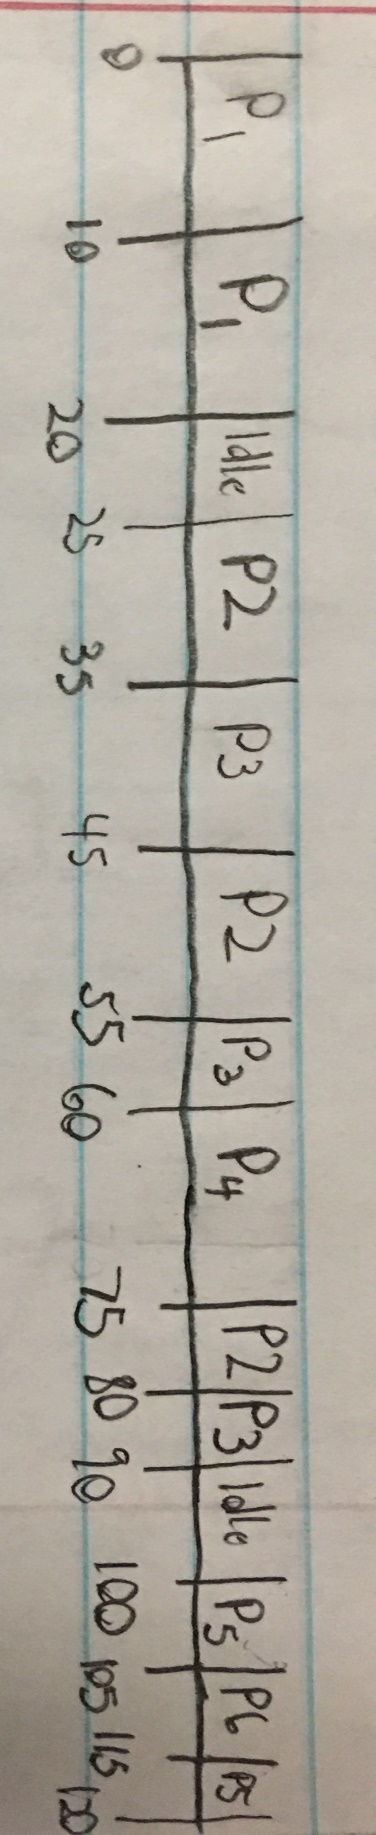 P1 P1 Idle P2 P3 P2 P3 P4 P2 P3 Idle P5 P6 P5
0 10 20 25 35 45 55 60 75 80 90 100 105 115 120